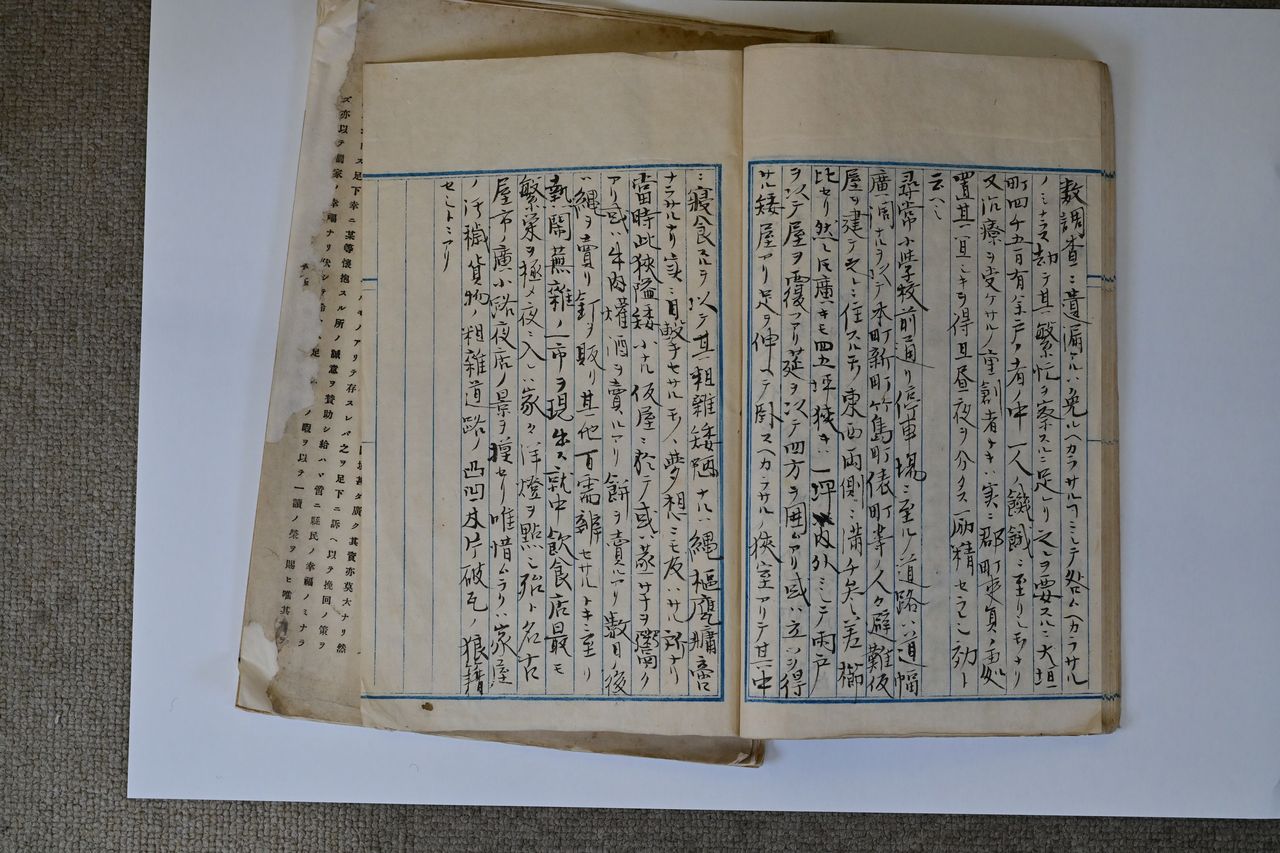 数調査ニ遺漏アルハ免ルヘカラサルフミシテ咎ムヘカラサル
ノミナラス却テ其繁忙ヲ察スルニ足レリ之ヲ要スルニ大垣
町四千五百有余戸ノ者ノ中一人ノ饑餓ニ至リシモノナリ
又治療ヲ受ケサルノ重創者ナキハ実ニ郡町吏員ノ処
置其宜シキヲ得且昼夜ヲ分タス励精セラレシ効ト
云ハン
尋常小学校前通リ停車場ニ至ルノ道路ハ道幅
廣濶ナルヲ以テ本町新町竹島町俵町等ノ人々避難仮
屋ヲ建テ之ニ住スルモノ東西両側ニ満チ矣ニ差櫛
比セリ然レ圧廣キモ四五坪狭キハ一坪内外ミシテ雨戸
ヲ以テ屋ヲ覆フアリ莚ヲ以テ四方ヲ囲ムアリ或ハ立ツヲ得
サル矮屋アリ足ヲ伸ヘテ臥スヘカラサルノ狭室アリテ其中
ニ寝食スルヲ以テ其粗雑矮陋ナルハ縄樞甕牖啻
ナラサルナリ実ニ目撃セサルモノヽ夢想ニモ及ハサル所ナリ
當時此狭隘矮小ナル仮屋ニ於テ或ハ菓サヲ鬻ク
アリ或ハ牛肉燗酒ヲ賣ルアリ餅ヲ賣ルアリ数日ノ後
ハ縄ヲ賣リ釘ヲ販リ其他百需辨セサルナキニ至リ
熱閙蕪雑ノ一市ヲ現出ス就中飲食店最モ
繁栄ヲ極メ夜ニ入レハ家々洋燈ヲ點シ殆ト名古
屋市廣小路夜店ノ景ヲ摸セリ唯惜ムラクハ家屋
ノ汚穢貨物ノ粗雑道路ノ凸凹木片破瓦ノ狼藉
セルトニアリ
ハモノアリテ存スレバ之ヲ足下ニ訴ヘ以テ挽回ノ策ヲ
ス足下幸ニ某等懐抱スル所ノ誠意ヲ賛助シ給ハヾ啻ニ縣民ノ幸福ノミナラ
ズ亦以テ國家ノ幸福ナリ
ノ暇ヲ以テ一讀ノ榮ヲ賜ヒ
甚ダ廣ク其資亦莫大ナリ然